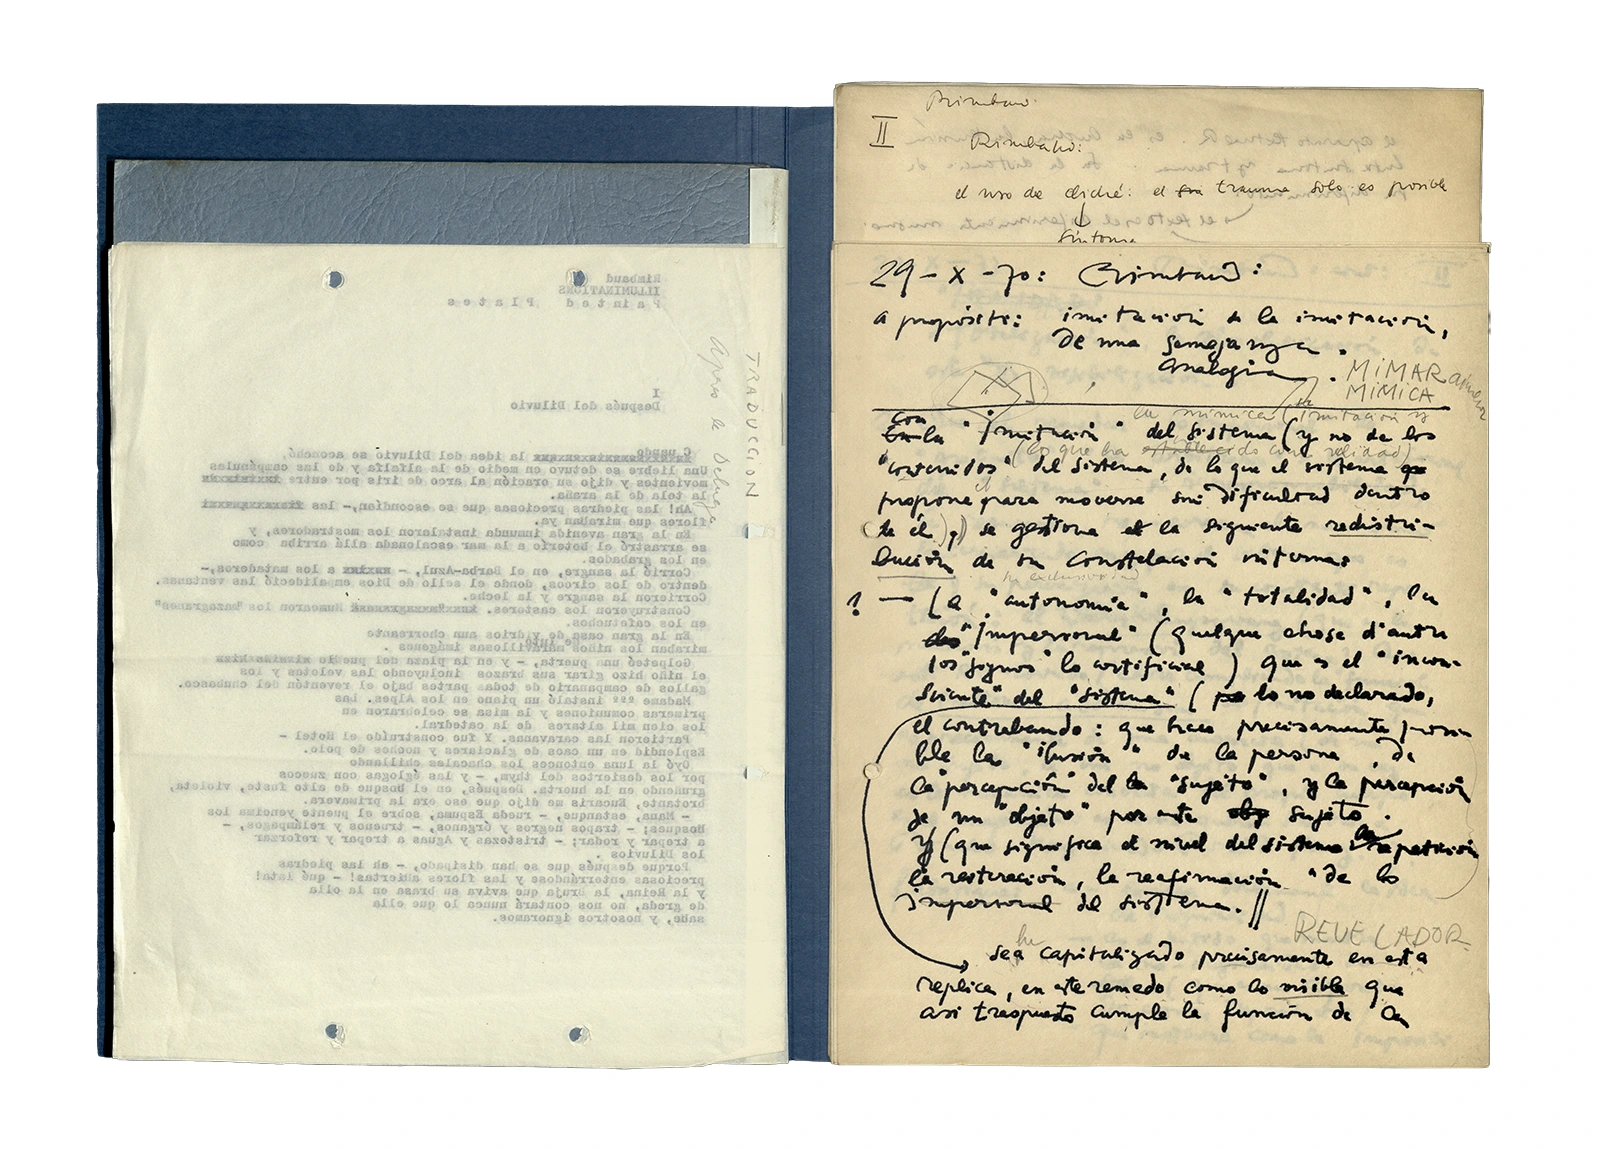 Rimbaud
ILLUMINATIONS
Painted Plates
TRADUCCION
Apres le Deluge
I
Después del Diluvio
Cuando la idea del Diluvio se aconchó,
Una liebre se detuvo en medio de la alfalfa y de las campánulas
movientes y dijo su oración al arco de iris por entre
la tela de la araña.
Ah! las piedras preciosas que se escondían,- las
flores que miraban ya.
En la gran avenida inmunda instalaron los mostradores, y
se arrastró el boterío a la mar escalonada allá arriba como
en los grabados.
Corrió la sangre, en el Barba-Azul, - a los mataderos,-
dentro de los circos, donde el sello de Dios emalideció las ventanas.
Corrieron la sangre y la leche.
Construyeron los castores. Humearon los "mazagranes"
en los cafetuchos.
En la gran casa de vidrios aun chorreante
de luto
miraban los niños maravillosas imágenes .
Golpeteó una puerta, - y en la plaza del pueblo
el niño hizo girar sus brazos incluyendo las veletas y los
gallos de campanario de todas partes bajo el reventón del chubasco.
Madame *** instaló un piano en los Alpes. Las
primeras comuniones y la misa se celebraron en
los cien mil altares de la catedral.
Partieron las caravanas. Y fue construído el Hotel -
Esplendid en un caos de glaciares y noches de polo.
Oyó la luna entonces los chacales chillando
por los desiertos del thym, - y las églogas con zuecos
gruñendo en la huerta. Después, en el bosque de alto fuste, violeta,
brotante, Eucaris me dijo que eso era la primavera.
- Mana, estanque, - rueda Espuma, sobre el puente y encima los
Bosques; - trapos negros y órganos, - truenos y relámpagos, -
a trepar y rodar; - tristezas y Aguas a trepar y reforzar
los Diluvios .
Porque después que se han disipado, - ah las piedras
preciosas enterrándose y las flores abiertas! - qué lata!
y la Reina, la bruja que aviva su brasa en la olla
de greda, no nos contará nunca lo que ella
sabe, y nosotros ignoramos.
Rimbaud.
II
Rimbaud:
el uso de cliché: el trauma solo es posible
síntoma
29-X-70: Rimbaud:
a propósito: imitación de la imitación,
De una semejanza.
analogía
MIMAR
MIMICA
la mimica (imitación y
Con la "Imitación" del sistema (y no de los
(lo que ha establecido como realidad)
"contenidos" del sistema, de lo que el sistema
propone para moverse sin dificultad dentro
de él) se gestiona la siguiente redistri-
bución de su constelación interna:
su exclusividad
? — (a "autonomía", la "totalidad", lo
"Impersonal" (quelque chose d'autre
los "signos" lo certificial) que es el "incon-
sciente" del "sistema" (lo no declarado,
el contrabando: que hace precisamente posi-
ble la "ilusión" de la persona, de
la "percepción" del "sujeto", y la percepción
de un "objeto" por este sujeto.
y (que significa el nivel del sistema la repetición
la reiteración, la reafirmación "de lo
impersonal del sistema. //
REVELADOR
sea capitalizado precisamente en esta
replica, en este remedo como lo visible que
asi traspuesto cumple la función de la